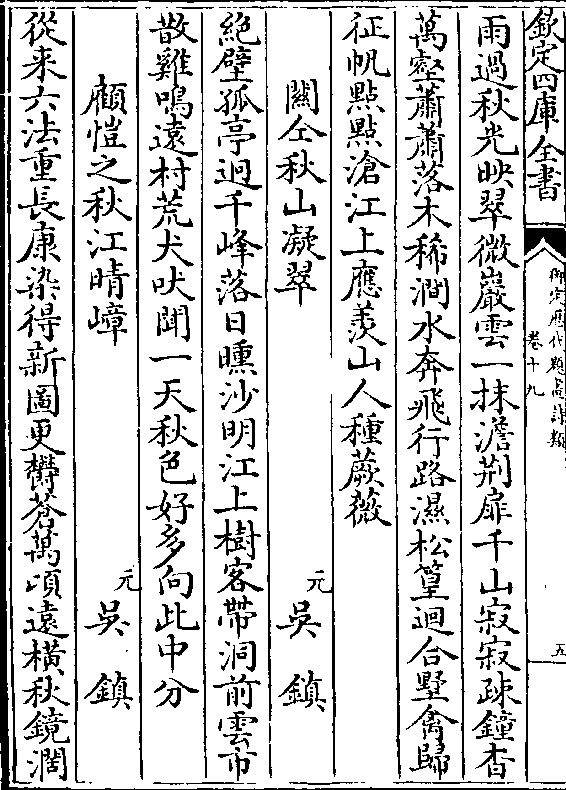 欽定四庫全書
御定歷代題畫詩類
卷十九
五
雨過秋光映翠微巖雲一抹澹荆扉千山寂寂疎鐘杳
萬壑蕭蕭落木稀澗水奔飛行路濕松篁迴合墅禽歸
征帆點點滄江上應羡山人種蕨薇
關仝秋山凝翠
元
吳鎮
絶壁孤亭迥千峰落日曛沙明江上樹客帶洞前雲市
散雞鳴遠村荒犬吠聞一天秋色好多向此中分
顧愷之秋江晴嶂
元
吳鎮
從来六法重長康染得新圖更欝蒼萬頃遠横秋鏡濶